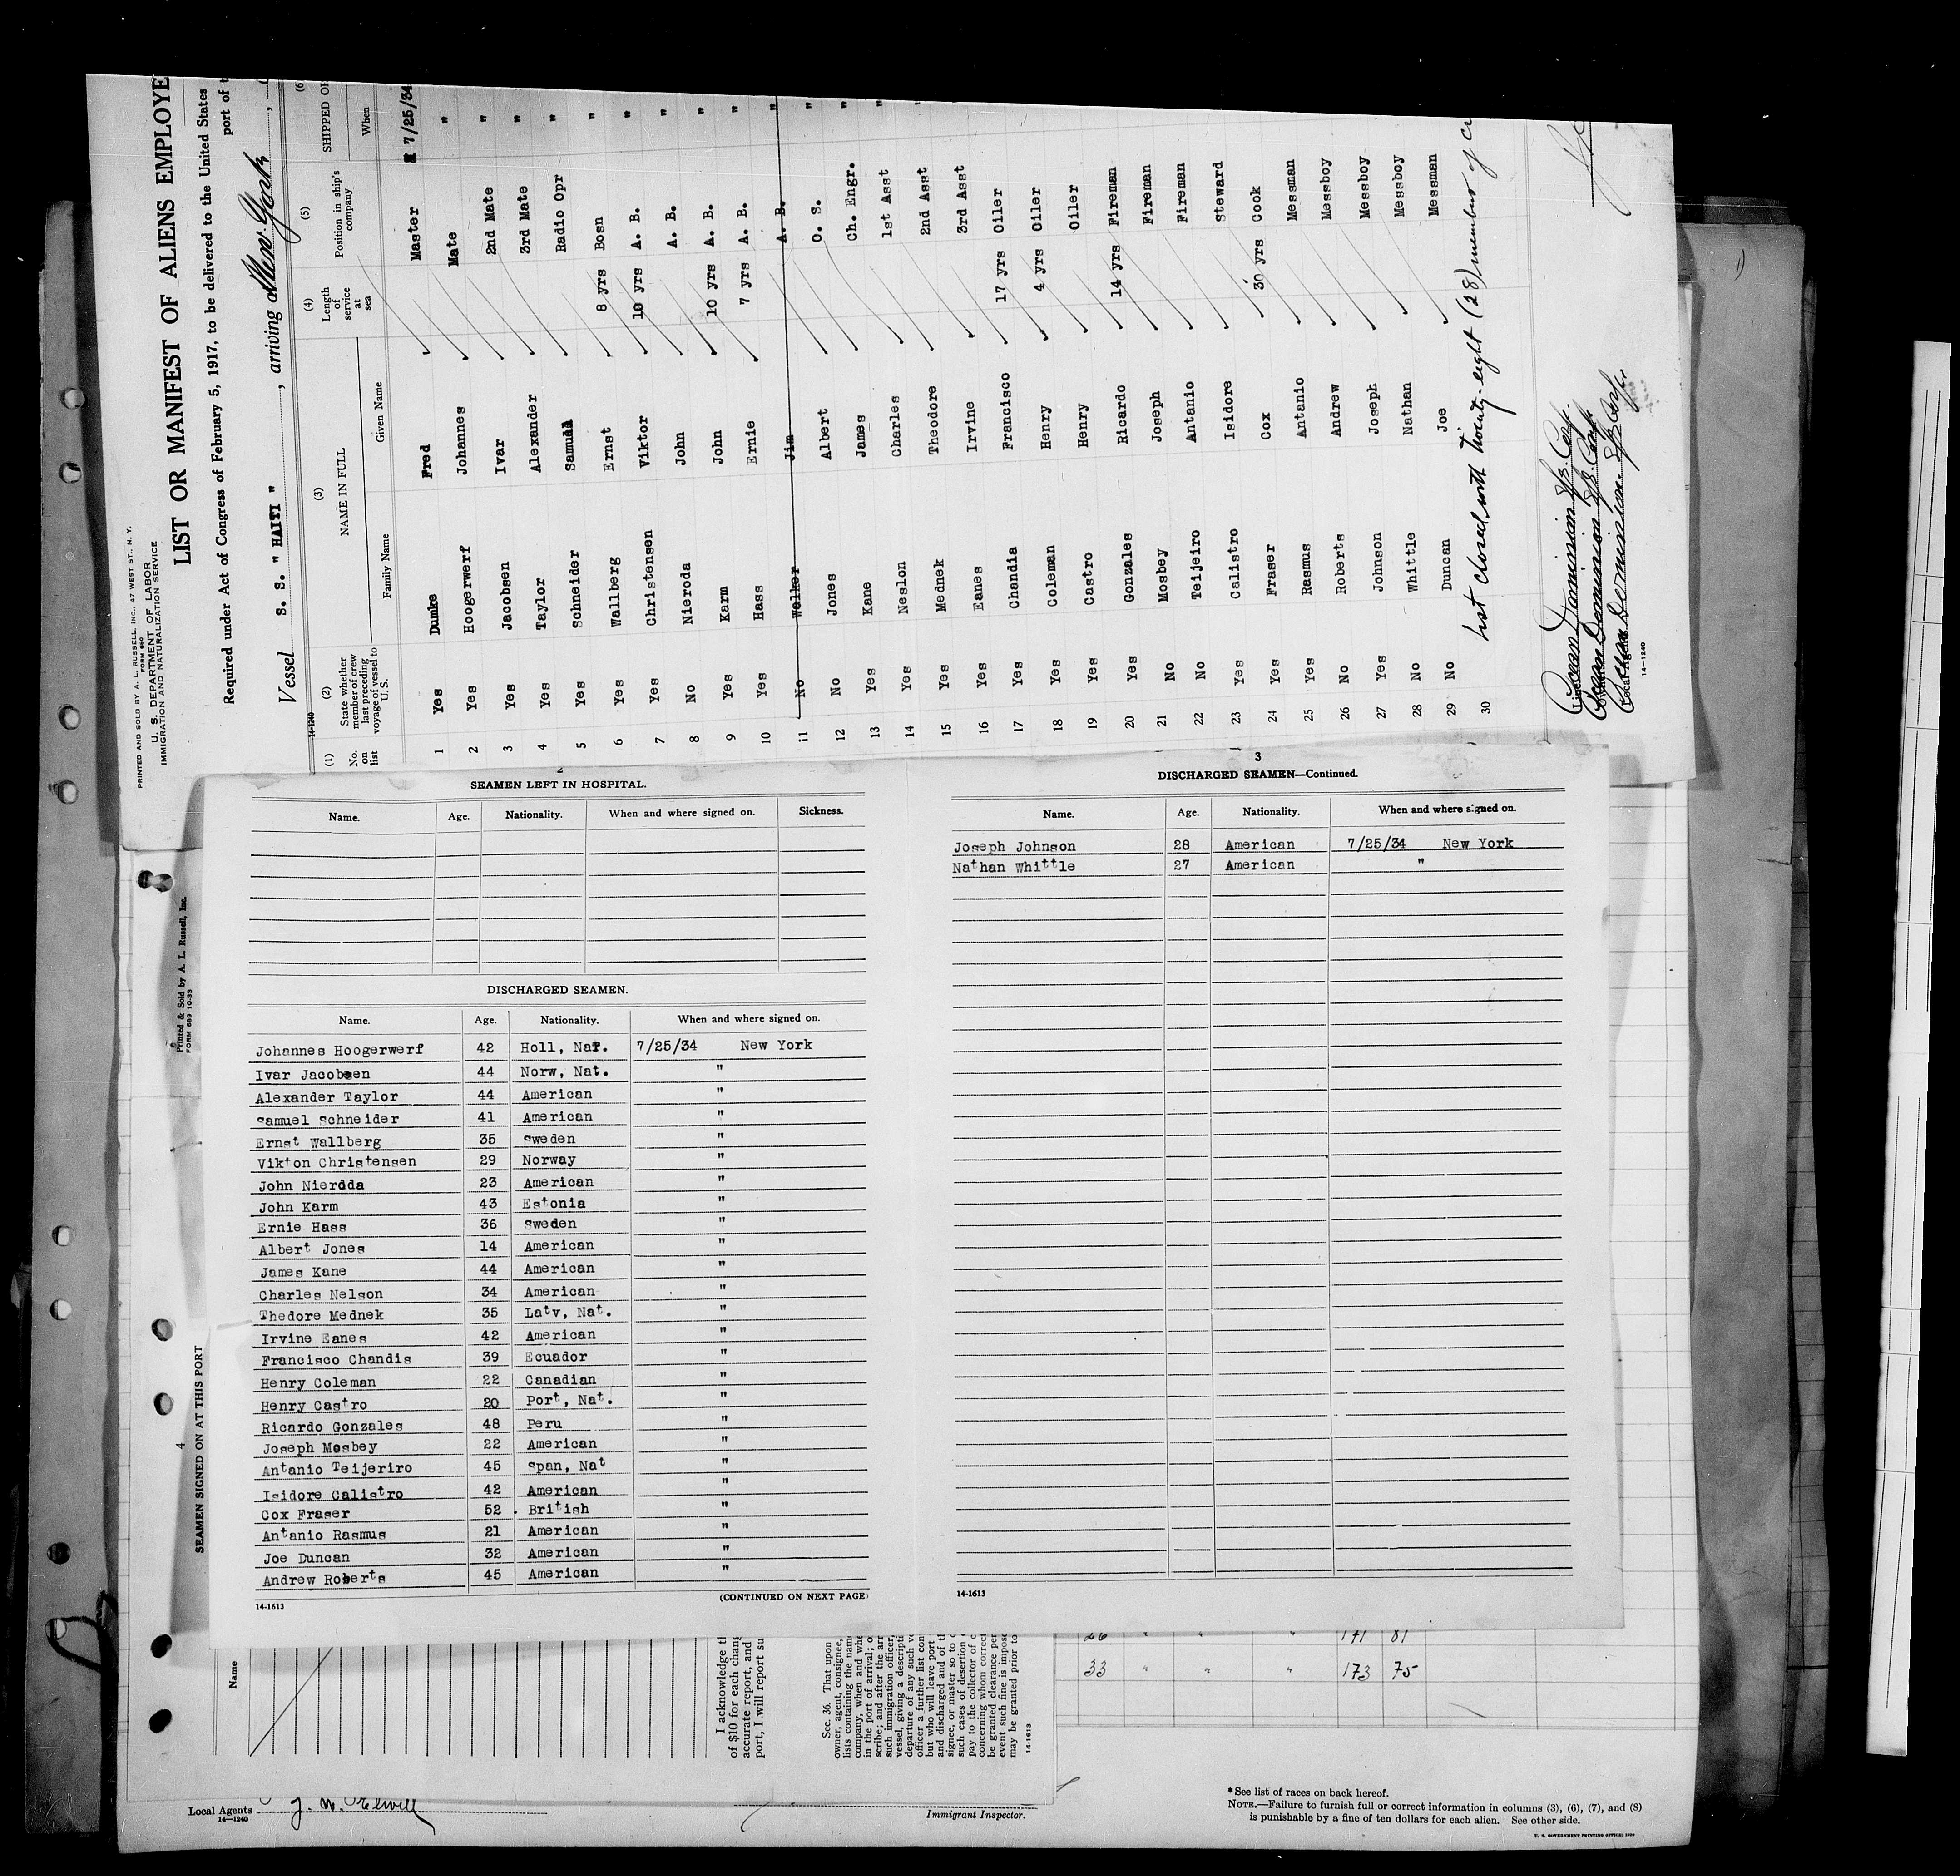 PRINTED AND SOLD BY A. L. RUSSELL, INC., 47 WEST ST., N. Y.
FORM 680
U. S. DEPARTMENT OF LABOR
IMMIGRATION AND NATURALIZATION SERVICE
LIST OR MANIFEST OF ALIENS EMPLOYE
Required under Act of Congress of February 5, 1917, to be delivered to the United States
port of
Vessel S. S. " HAITI " , arriving New York ,
14-1240
(1) (2) (3) (4) (5) (6
No. on list State whether member of crew last preceding voyage of vessel to U. S. NAME IN FULL Length of service at sea Position in ship's company SHIPPED OR
Family Name Given Name When
1 Yes Dumke Fred Master 7/25/34
2 Yes Hoogerwerf Johannes Mate "
3 Yes Jacobsen Ivar 2nd Mate "
4 Yes Taylor Alexander 3rd Mate "
5 Yes Schneider Samuel Radio Opr "
6 Yes Wallberg Ernst 8 yrs Bosn "
7 Yes Christensen Viktor 10 yrs A. B. "
8 No Nieroda John A. B. "
9 Yes Karm John 10 yrs A. B. "
10 Yes Hass Ernie 7 yrs A. B. "
11 No Walker Jim A. B. "
12 No Jones Albert O. S. "
13 Yes Kane James Ch. Engr. "
14 Yes Neslon Charles 1st Asst "
15 Yes Mednek Theodore 2nd Asst "
16 Yes Eanes Irvine 3rd Asst
17 Yes Chandia Francisco 17 yrs Oiler
18 Yes Coleman Henry 4 yrs Oiler
19 Yes Castro Henry Oiler
20 Yes Gonzales Ricardo 14 yrs Fireman
21 No Mosbey Joseph Fireman
22 No Teijeiro Antanio Fireman
23 Yes Calistro Isidore Steward
24 Yes Fraser Cox 30 yrs Cook
25 Yes Rasmus Antanio Messman
26 No Roberts Andrew Messboy
27 Yes Johnson Joseph Messboy
28 No Whittle Nathan Messboy
29 No Duncan Joe Messman
30
List closed with Twenty-eight (28) members of
Ocean Dominion S/S. Corp.
Ocean Dominion S/S. Corp.
Ocean Dominion S/S Corp.
14-1240
2
SEAMEN LEFT IN HOSPITAL.
Name. Age. Nationality. When and where signed on. Sickness.
DISCHARGED SEAMEN.
Name. Age. Nationality. When and where signed on.
Johannes Hoogerwerf 42 Holl, Nat. 7/25/34 New York
Ivar Jacobsen 44 Norw, Nat. "
Alexander Taylor 44 American "
Samuel Schneider 41 American "
Ernst Wallberg 35 Sweden "
Vikton Christensen 29 Norway "
John Nierdda 23 American "
John Karm 43 Estonia "
Ernie Hass 36 Sweden "
Albert Jones 14 American "
James Kane 44 American "
Charles Nelson 34 American "
Thedore Mednek 35 Latv, Nat. "
Irvine Eanes 42 American "
Francisco Chandis 39 Ecuador "
Henry Coleman 22 Canadian "
Henry Castro 20 Port, Nat. "
Ricardo Gonzales 48 Peru "
Joseph Mosbey 22 American "
Antanio Teijeriro 45 Span, Nat "
Isidore Calistro 42 American "
Cox Fraser 52 British "
Antanio Rasmus 21 American "
Joe Duncan 32 American "
Andrew Roberts 45 American "
14-1613
(CONTINUED ON NEXT PAGE)
3
DISCHARGED SEAMEN—Continued.
Name. Age. Nationality. When and where signed on.
Joseph Johnson 28 American 7/25/34 New York
Nathan Whittle 27 American "
14-1613
Printed & Sold by A. L. Russell, Inc.
FORM 689 10-33
4
SEAMEN SIGNED ON AT THIS PORT
Name
I acknowledge th
of $10 for each chang
accurate report, and
port, I will report su
Sec. 36. That upon
owner, agent, consignee,
lists containing the name
company, when and whe
in the port of arrival; o
scribe; and after the arr
such immigration officer,
vessel, giving a descripti
departure of any such v
officer a further list con
but who will leave port
and discharged and of th
signee, or master so to d
such cases of desertion
pay to the collector of c
concerning whom correct
be granted clearance per
event such fine is impose
may be granted prior to
14-1613
26 " " " 171 81
33 " " " 173 75
Local Agents
14—1240
Immigrant Inspector.
*See list of races on back hereof.
NOTE.—Failure to furnish full or correct information in columns (3), (6), (7), and (8)
is punishable by a fine of ten dollars for each alien. See other side.
U. S. GOVERNMENT PRINTING OFFICE: